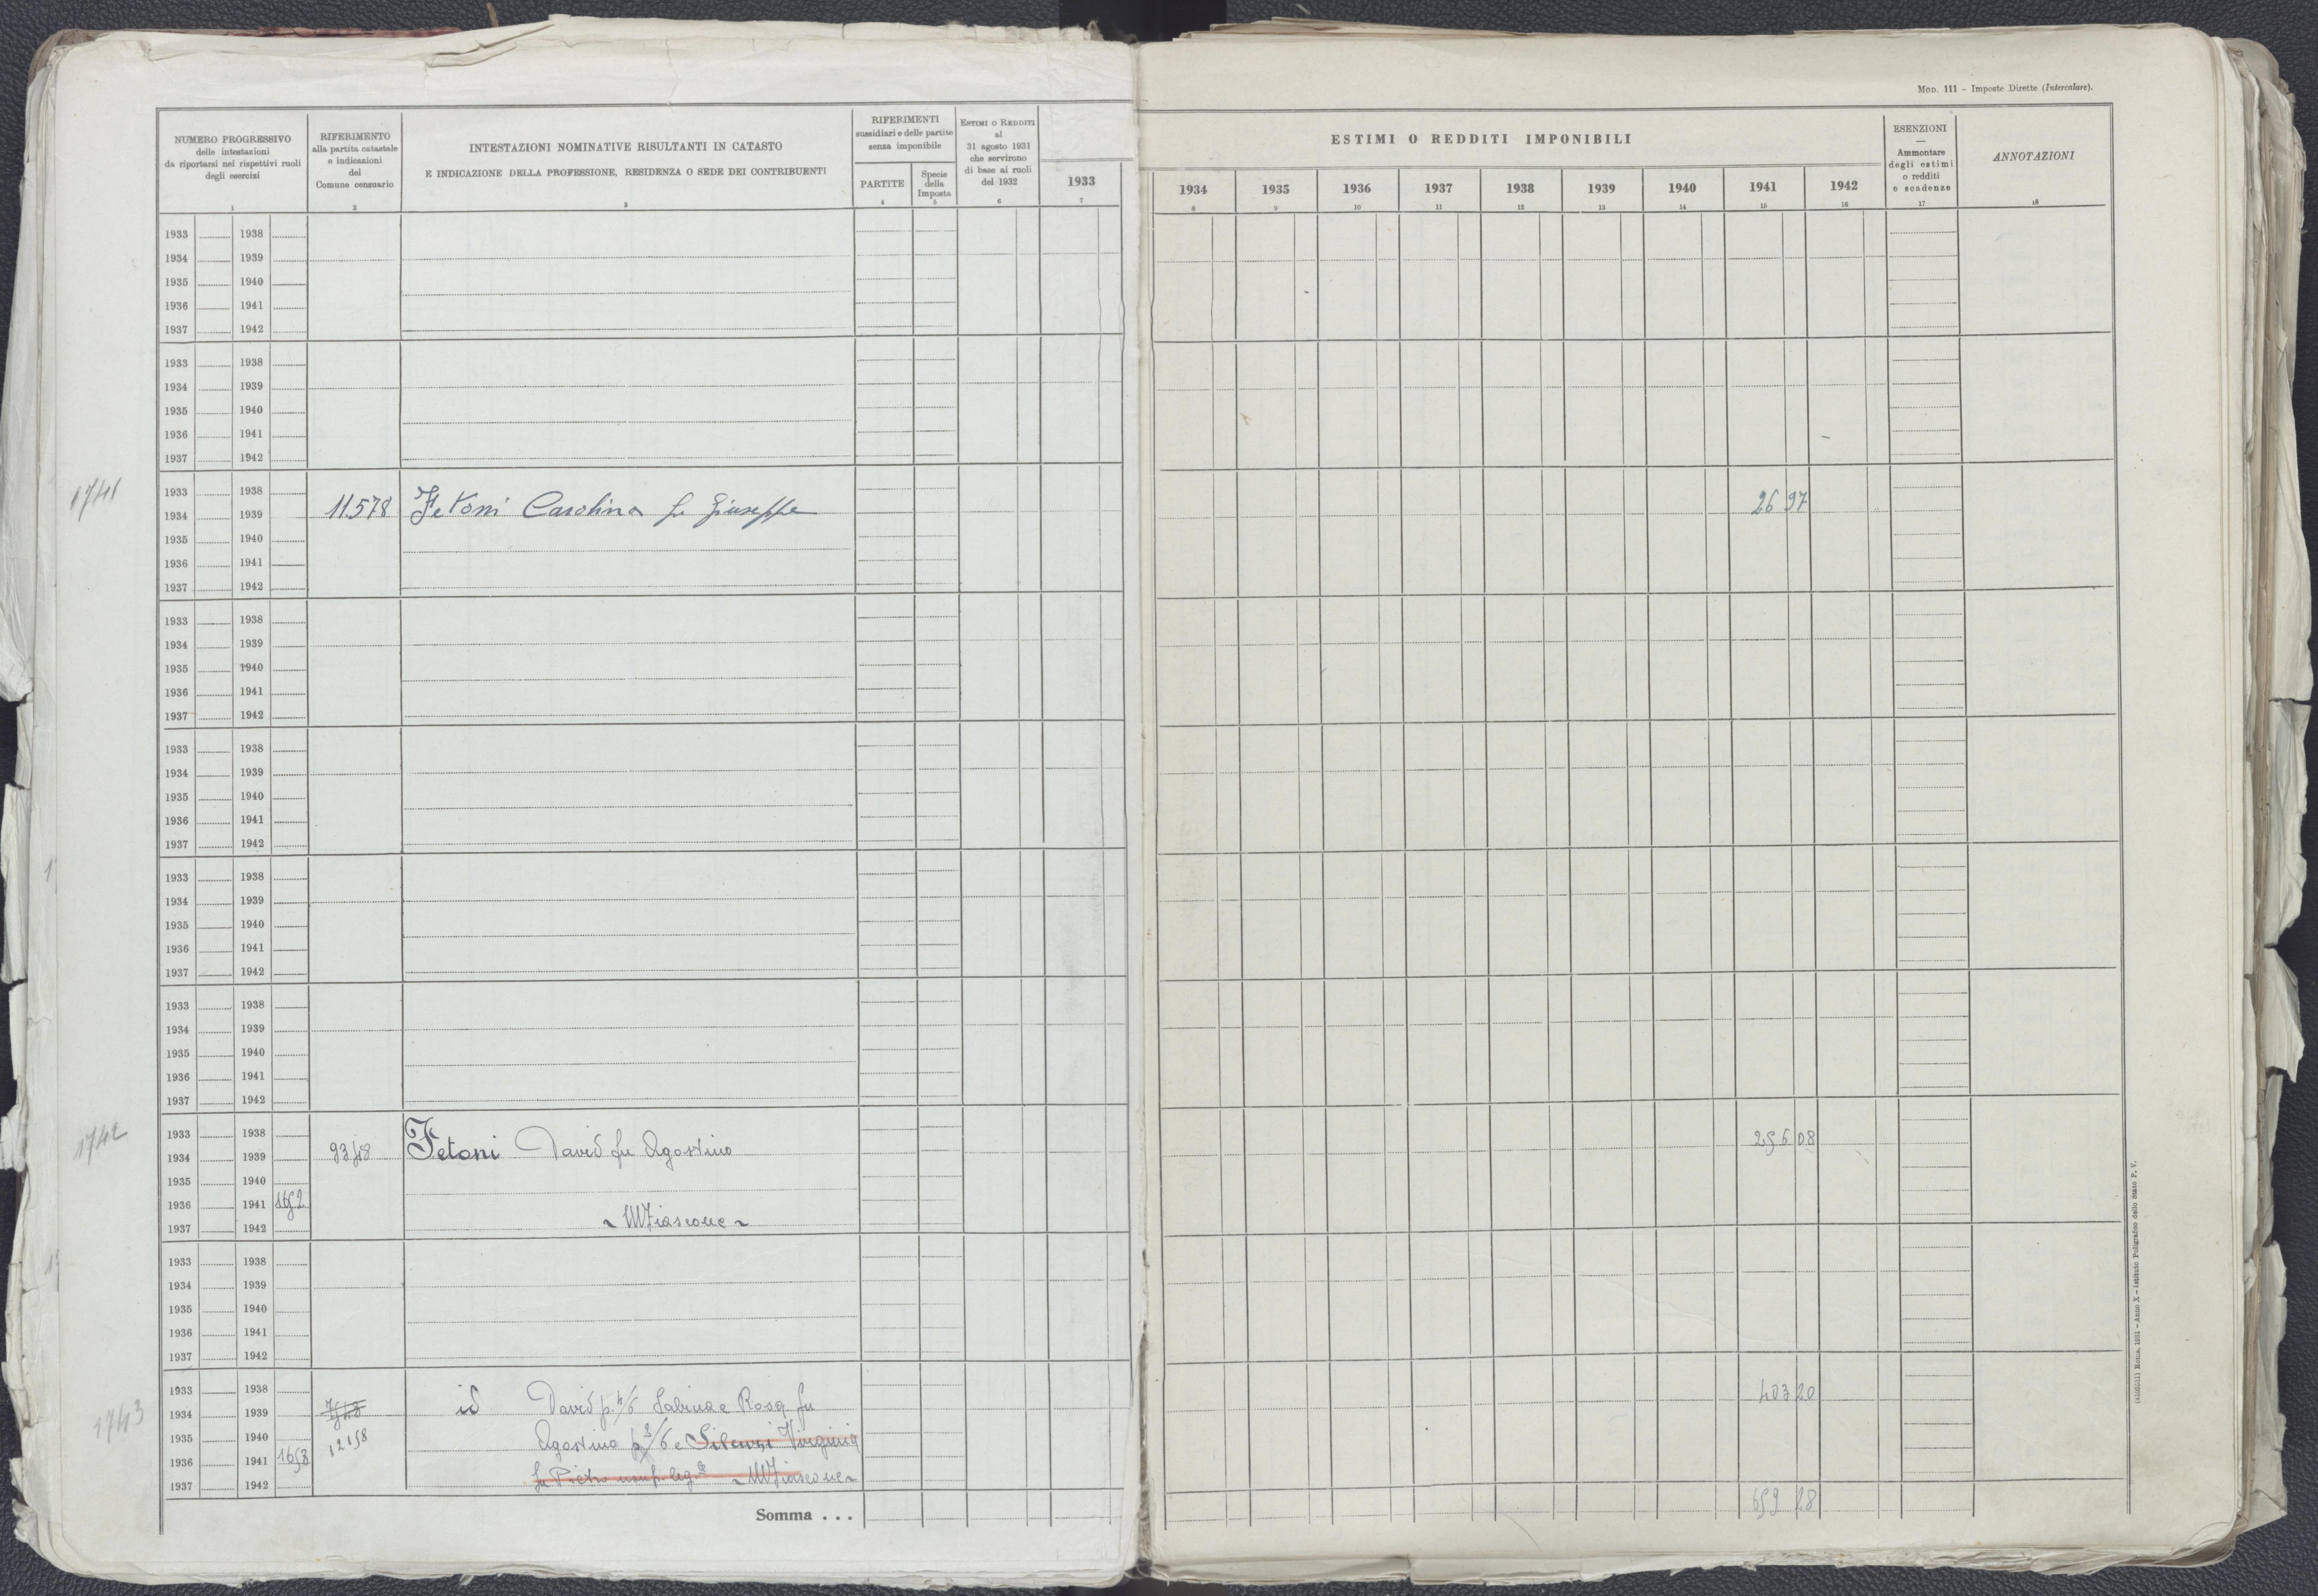 MOD. 111 – Imposte Dirette (Intercalare).
NUMERO PROGRESSIVO
delle intestazioni
da riportarsi nei rispettivi ruoli
degli esercizi
1
RIFERIMENTO
alla partita catastale
e indicazioni
del
Comune censuario
2
INTESTAZIONI NOMINATIVE RISULTANTI IN CATASTO
E INDICAZIONE DELLA PROFESSIONE, RESIDENZA O SEDE DEI CONTRIBUENTI
3
RIFERIMENTI
sussidiari e delle partite
senza imponibile
PARTITE
4
Specie
della
Imposta
5
ESTIMI O REDDITI
al
31 agosto 1931
che servirono
di base ai ruoli
del 1932
6
1933
7
ESTIMI O REDDITI IMPONIBILI
1934 1935 1936 1937 1938 1939 1940 1941 1942
8 9 10 11 12 13 14 15 16
ESENZIONI
—
Ammontare
degli estimi
o redditi
e scadenze
17
ANNOTAZIONI
18
1933 1938
1934 1939
1935 1940
1936 1941
1937 1942
1933 1938
1934 1939
1935 1940
1936 1941
1937 1942
1741
1933 1938
1934 1939 11578 Fetoni Carolina fu Giuseppe 26 97
1935 1940
1936 1941
1937 1942
1933 1938
1934 1939
1935 1940
1936 1941
1937 1942
1933 1938
1934 1939
1935 1940
1936 1941
1937 1942
1933 1938
1934 1939
1935 1940
1936 1941
1937 1942
1933 1938
1934 1939
1935 1940
1936 1941
1937 1942
1742
1933 1938 256 08
1934 1939 Fetoni David fu Agostino
1935 1940
1936 1941 1652
1937 1942 ~ MFiascone ~
1933 1938
1934 1939
1935 1940
1936 1941
1937 1942
1743
1933 1938 403 20
1934 1939 id David p. 4/6 Sabina e Rosa fu
1935 1940 12158 Agostino 3/6 e Silenzi Virginia
1936 1941 1653
1937 1942 fu Pietro usuf. leg.e ~ MFiascone ~
Somma . . . 659 28
(4105051) Roma, 1931 – Anno X – Istituto Poligrafico dello Stato P. V.